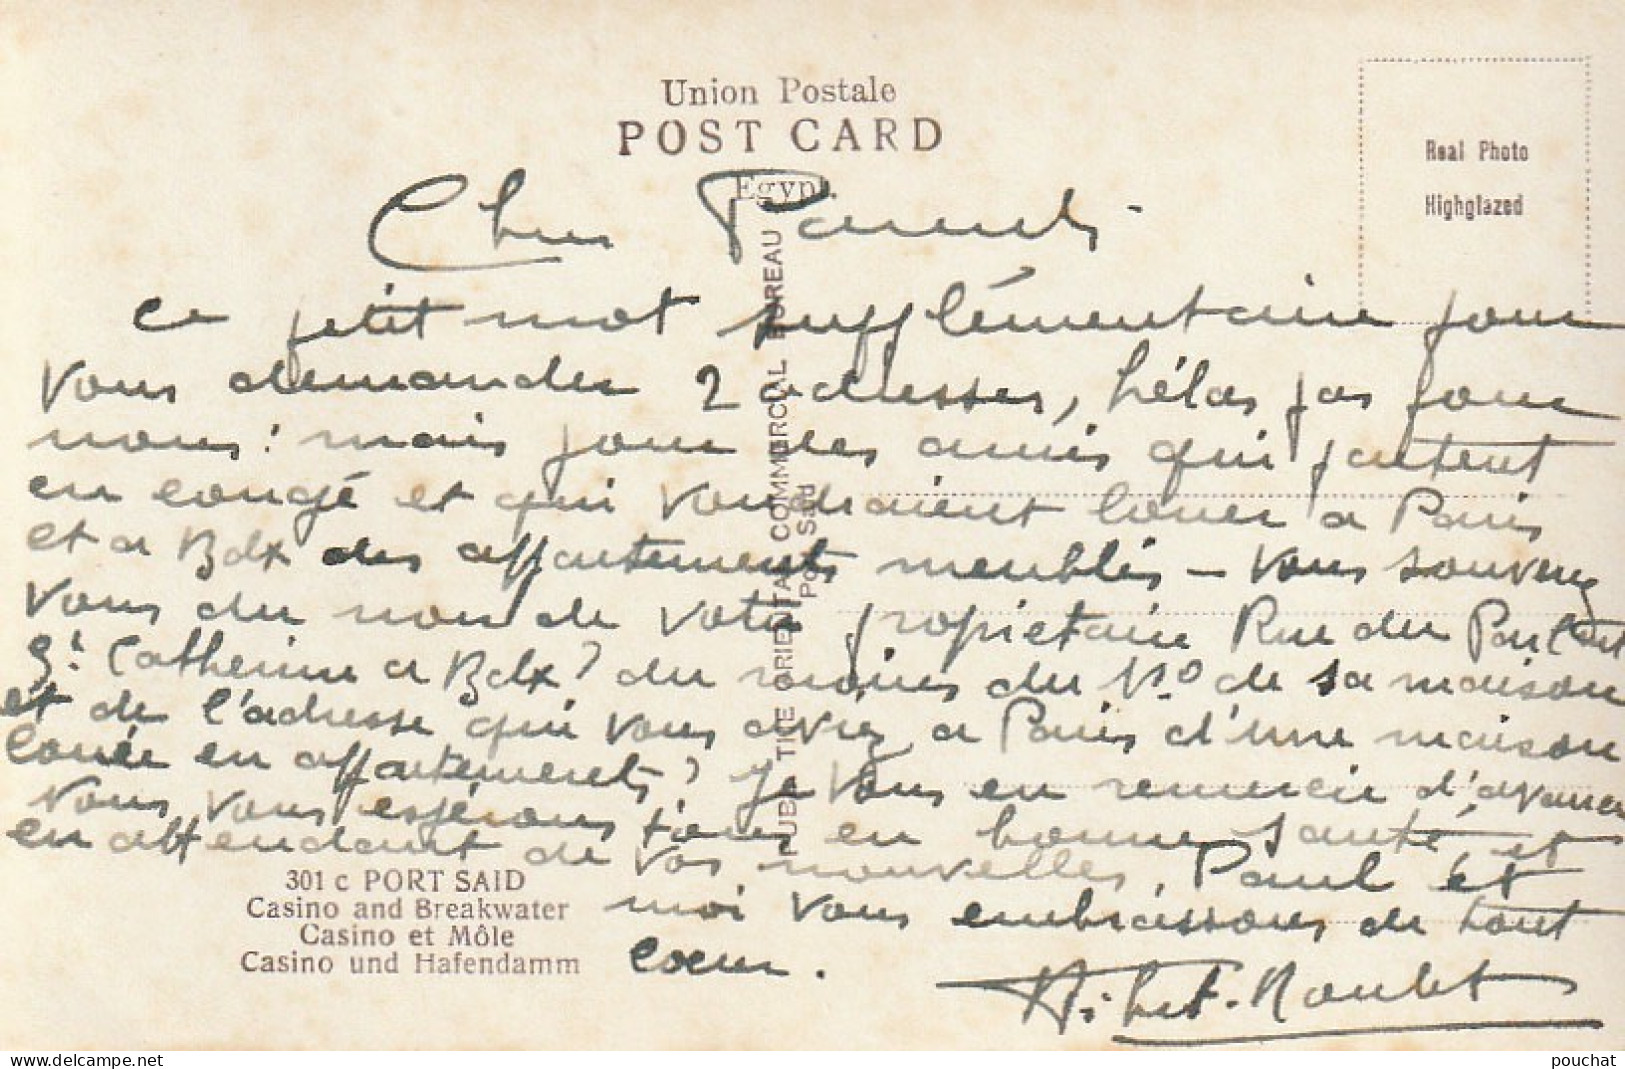 Union Postale
POST CARD
Egypt.
Real Photo
Highglazed
Chers Parents
ce petit mot supplémentaire pour
vous demander 2 adresses, hélas pas pour
nous! mais pour des amis qui partent
en congé et qui voudraient louer à Paris
et à Bdx des appartements meublés – Vous souvenez
vous du nom de votre propriétaire Rue du
St Catherine à Bdx? du moins du No de sa maison
et de l'adresse que vous aviez à Paris d'une maison
louée en appartements? Je vous en remercie d'avance
nous vous espérons tous en bonne santé, et
en attendant de vos nouvelles, Paul et
moi vous embrassons de tout
coeur.
301 c PORT SAID
Casino and Breakwater
Casino et Môle
Casino und Hafendamm
PUB. THE ORIENTAL COMMERCIAL BUREAU
Port Said
pouchat
Delcampe.net